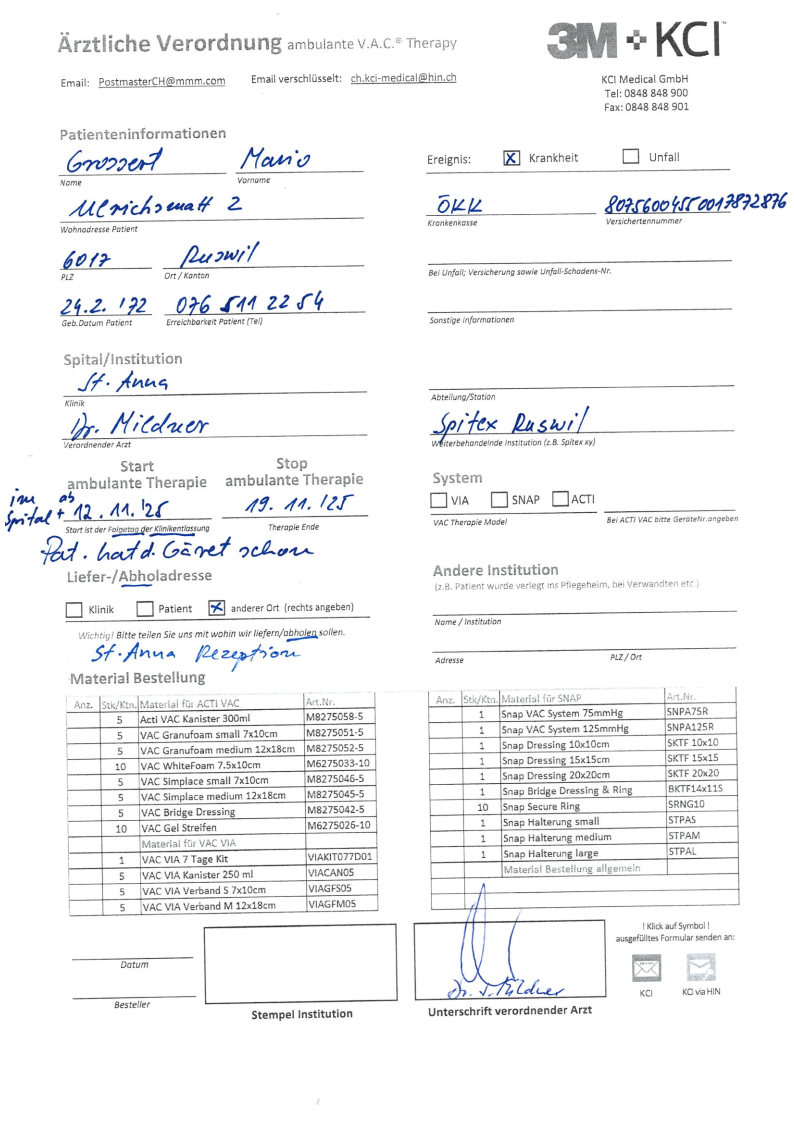 Ärztliche Verordnung ambulante V.A.C.® Therapy
3M + KCI™
Email: PostmasterCH@mmm.com Email verschlüsselt: ch.kci-medical@hin.ch
KCI Medical GmbH
Tel: 0848 848 900
Fax: 0848 848 901
Patienteninformationen
Grossert Mario
Name Vorname
Ulrichsmatt 2
Wohnadresse Patient
6017 Ruswil
PLZ Ort / Kanton
24.2.'72 076 511 22 54
Geb.Datum Patient Erreichbarkeit Patient (Tel)
Ereignis: X Krankheit Unfall
ÖKK 80756004550017872876
Krankenkasse Versichertennummer
Bei Unfall; Versicherung sowie Unfall-Schadens-Nr.
Sonstige Informationen
Spital/Institution
St. Anna
Klinik
Dr. Mildner
Verordnender Arzt
Abteilung/Station
Spitex Ruswil
Weiterbehandelnde Institution (z.B. Spitex xy)
Start
ambulante Therapie
Stop
ambulante Therapie
im ab
Spital + 12.11.'25
19.11.'25
Start ist der Folgetag der Klinikentlassung Therapie Ende
Pat. hat d. Gäret schon
System
VIA SNAP ACTI
VAC Therapie Model Bei ACTI VAC bitte GeräteNr.angeben
Liefer-/Abholadresse
Klinik Patient X anderer Ort (rechts angeben)
Wichtig! Bitte teilen Sie uns mit wohin wir liefern/abholen sollen.
St. Anna Rezeption
Andere Institution
(z.B. Patient wurde verlegt ins Pflegeheim, bei Verwandten etc.)
Name / Institution
Adresse PLZ / Ort
Material Bestellung
Anz. Stk/Ktn. Material für ACTI VAC Art.Nr.
5 Acti VAC Kanister 300ml M8275058-5
5 VAC Granufoam small 7x10cm M8275051-5
5 VAC Granufoam medium 12x18cm M8275052-5
10 VAC WhiteFoam 7.5x10cm M6275033-10
5 VAC Simplace small 7x10cm M8275046-5
5 VAC Simplace medium 12x18cm M8275045-5
5 VAC Bridge Dressing M8275042-5
10 VAC Gel Streifen M6275026-10
Material für VAC VIA
1 VAC VIA 7 Tage Kit VIAKIT077D01
5 VAC VIA Kanister 250 ml VIACAN05
5 VAC VIA Verband S 7x10cm VIAGFS05
5 VAC VIA Verband M 12x18cm VIAGFM05
Anz. Stk/Ktn. Material für SNAP Art.Nr.
1 Snap VAC System 75mmHg SNPA75R
1 Snap VAC System 125mmHg SNPA125R
1 Snap Dressing 10x10cm SKTF 10x10
1 Snap Dressing 15x15cm SKTF 15x15
1 Snap Dressing 20x20cm SKTF 20x20
1 Snap Bridge Dressing & Ring BKTF14x11S
10 Snap Secure Ring SRNG10
1 Snap Halterung small STPAS
1 Snap Halterung medium STPAM
1 Snap Halterung large STPAL
Material Bestellung allgemein
Datum
Besteller
Stempel Institution
Dr. J. Mildner
Unterschrift verordnender Arzt
! Klick auf Symbol !
ausgefülltes Formular senden an:
KCI KCI via HIN